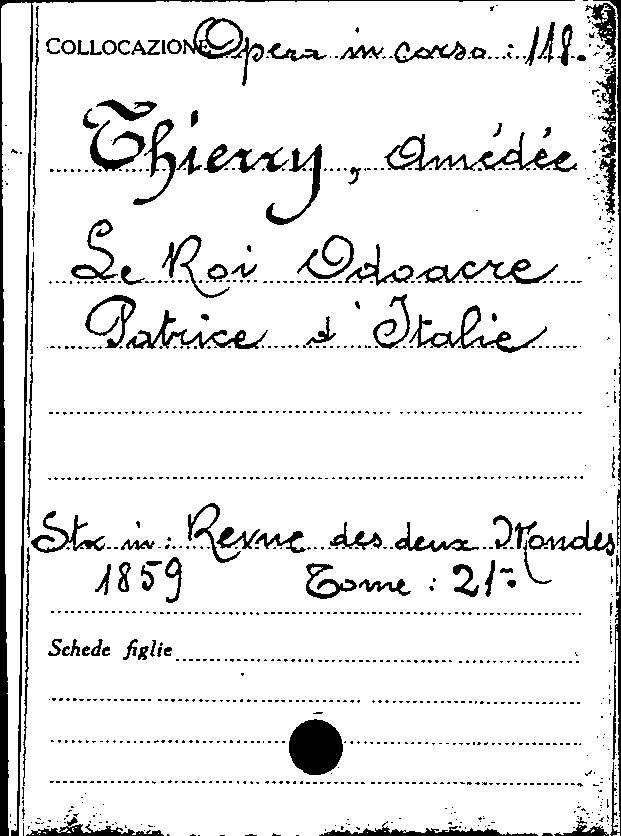 COLLOCAZIONE Opera in corso : 118.
Thierry, Amédée
Le Roi Odoacre
Patrice d'Italie
Sta in : Revue des deux Mondes
1859 Tome : 21-°
Schede figlie